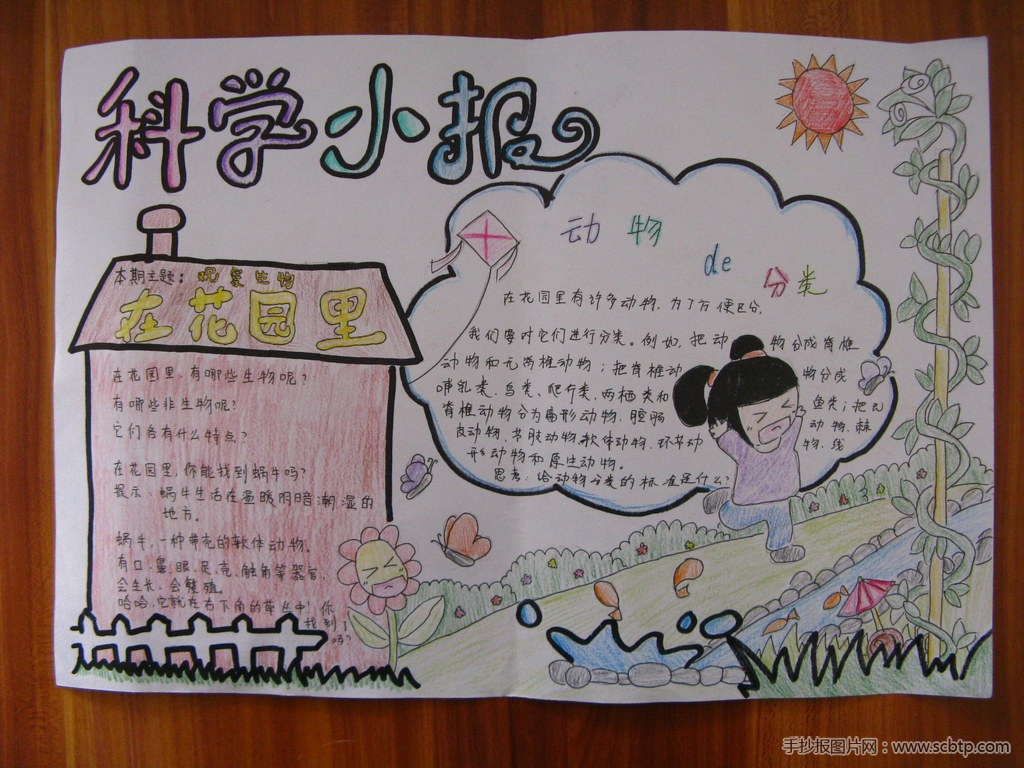 科学小报
本期主题：观察生物
在花园里
在花园里，有哪些生物呢？
有哪些非生物呢？
它们各有什么特点？
在花园里，你能找到蜗牛吗？
提示：蜗牛生活在温暖阴暗潮湿的
地方。
蜗牛，一种带壳的软体动物。
有口、鼻、眼、足、壳、触角等器官，
会生长、会繁殖。
哈哈，它就在右下角的草丛中！你
找到了
吗？
动物de分类
在花园里有许多动物，为了方便区分，
我们要对它们进行分类。例如，把动物分成脊椎
动物和无脊椎动物；把脊椎动物分成
哺乳类、鸟类、爬行类、两栖类和鱼类；把无
脊椎动物分为扁形动物、腔肠动物、棘
皮动物、节肢动物、软体动物、环节动物、线
形动物和原生动物。
思考：给动物分类的标准是什么？
手抄报图片网：www.scbtp.com